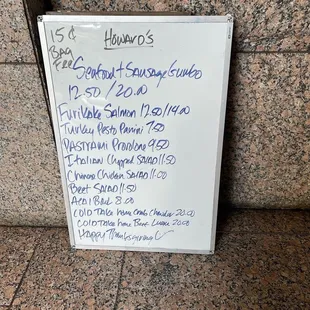 15¢
BAG
Fee
Howard's
Seafood + Sausage Gumbo
12.50 / 20.00
Furikake Salmon 12.50/14.00
Turkey Pesto Panini 7.50
PASTRAMI Provolone 9.50
Italian Chopped Salad 11.50
Chinese Chicken Salad 11.00
Beet Salad 11.50
Acai Bowl 8.00
Cold Take home Crab Chowder 20.00
Cold Take home Beef 20.00
Happy Thanksgiving